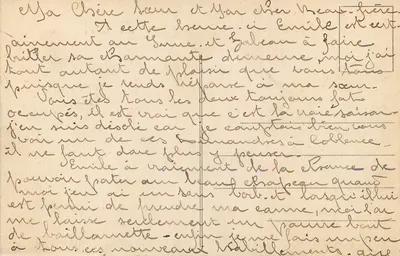 Ma Chère Sœur et Mon cher Beau-frère
A cette heure-ci Emile est cert-
ainement au et Gabeau à faire
sa Charmante moi j'ai
tout autant de plaisir que vous
puisque je rends réponse à ma sœur.
Vous êtes tous les deux toujours fort
occupés, il est vrai que c'est la vraie saison
j'en suis désolé car je comptais bien vous
voir un de ces dimanches à
il ne faut donc plus y penser.
Emile a vraiment de la chance de
pouvoir porter un beau chapeau quand
moi j'en ai un sans bord et lorsqu'il lui
est permis de prendre ma canne, moi l'on
me laisse seulement un pauvre bout
de baillamette - enfin je me fais un peu
à tous ces nouveaux habillements, que